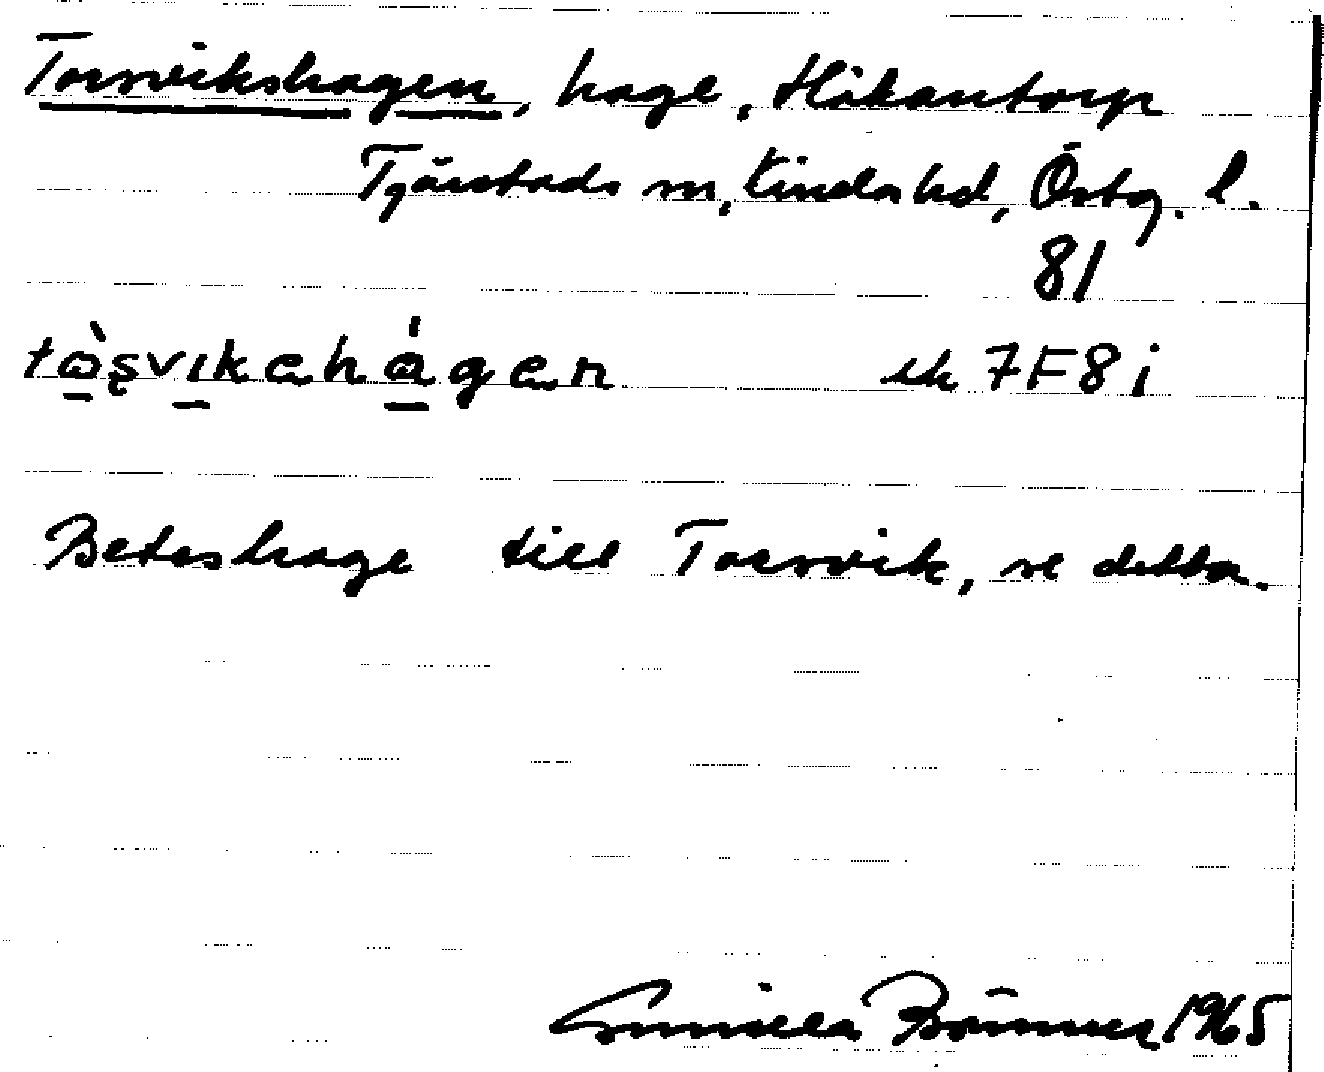 Torsvikshagen, hage, Håkantorp
Tjärstads sn, Kinda hd, Östg. l.
81
tòşvıkahágen ek 7F8i
Beteshage till Torsvik, se detta.
Gunilla Brömmer 1965